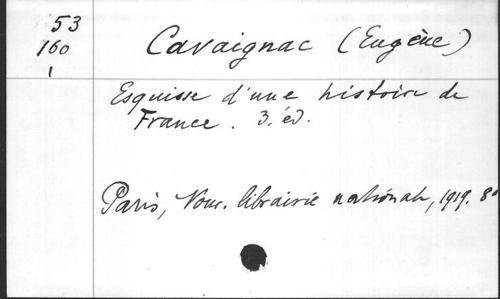 53
160
1
Cavaignac (Eugène)
Esquisse d'une histoire de
France. 3. éd.
Paris, Nouv. librairie nationale, 1919. 8°